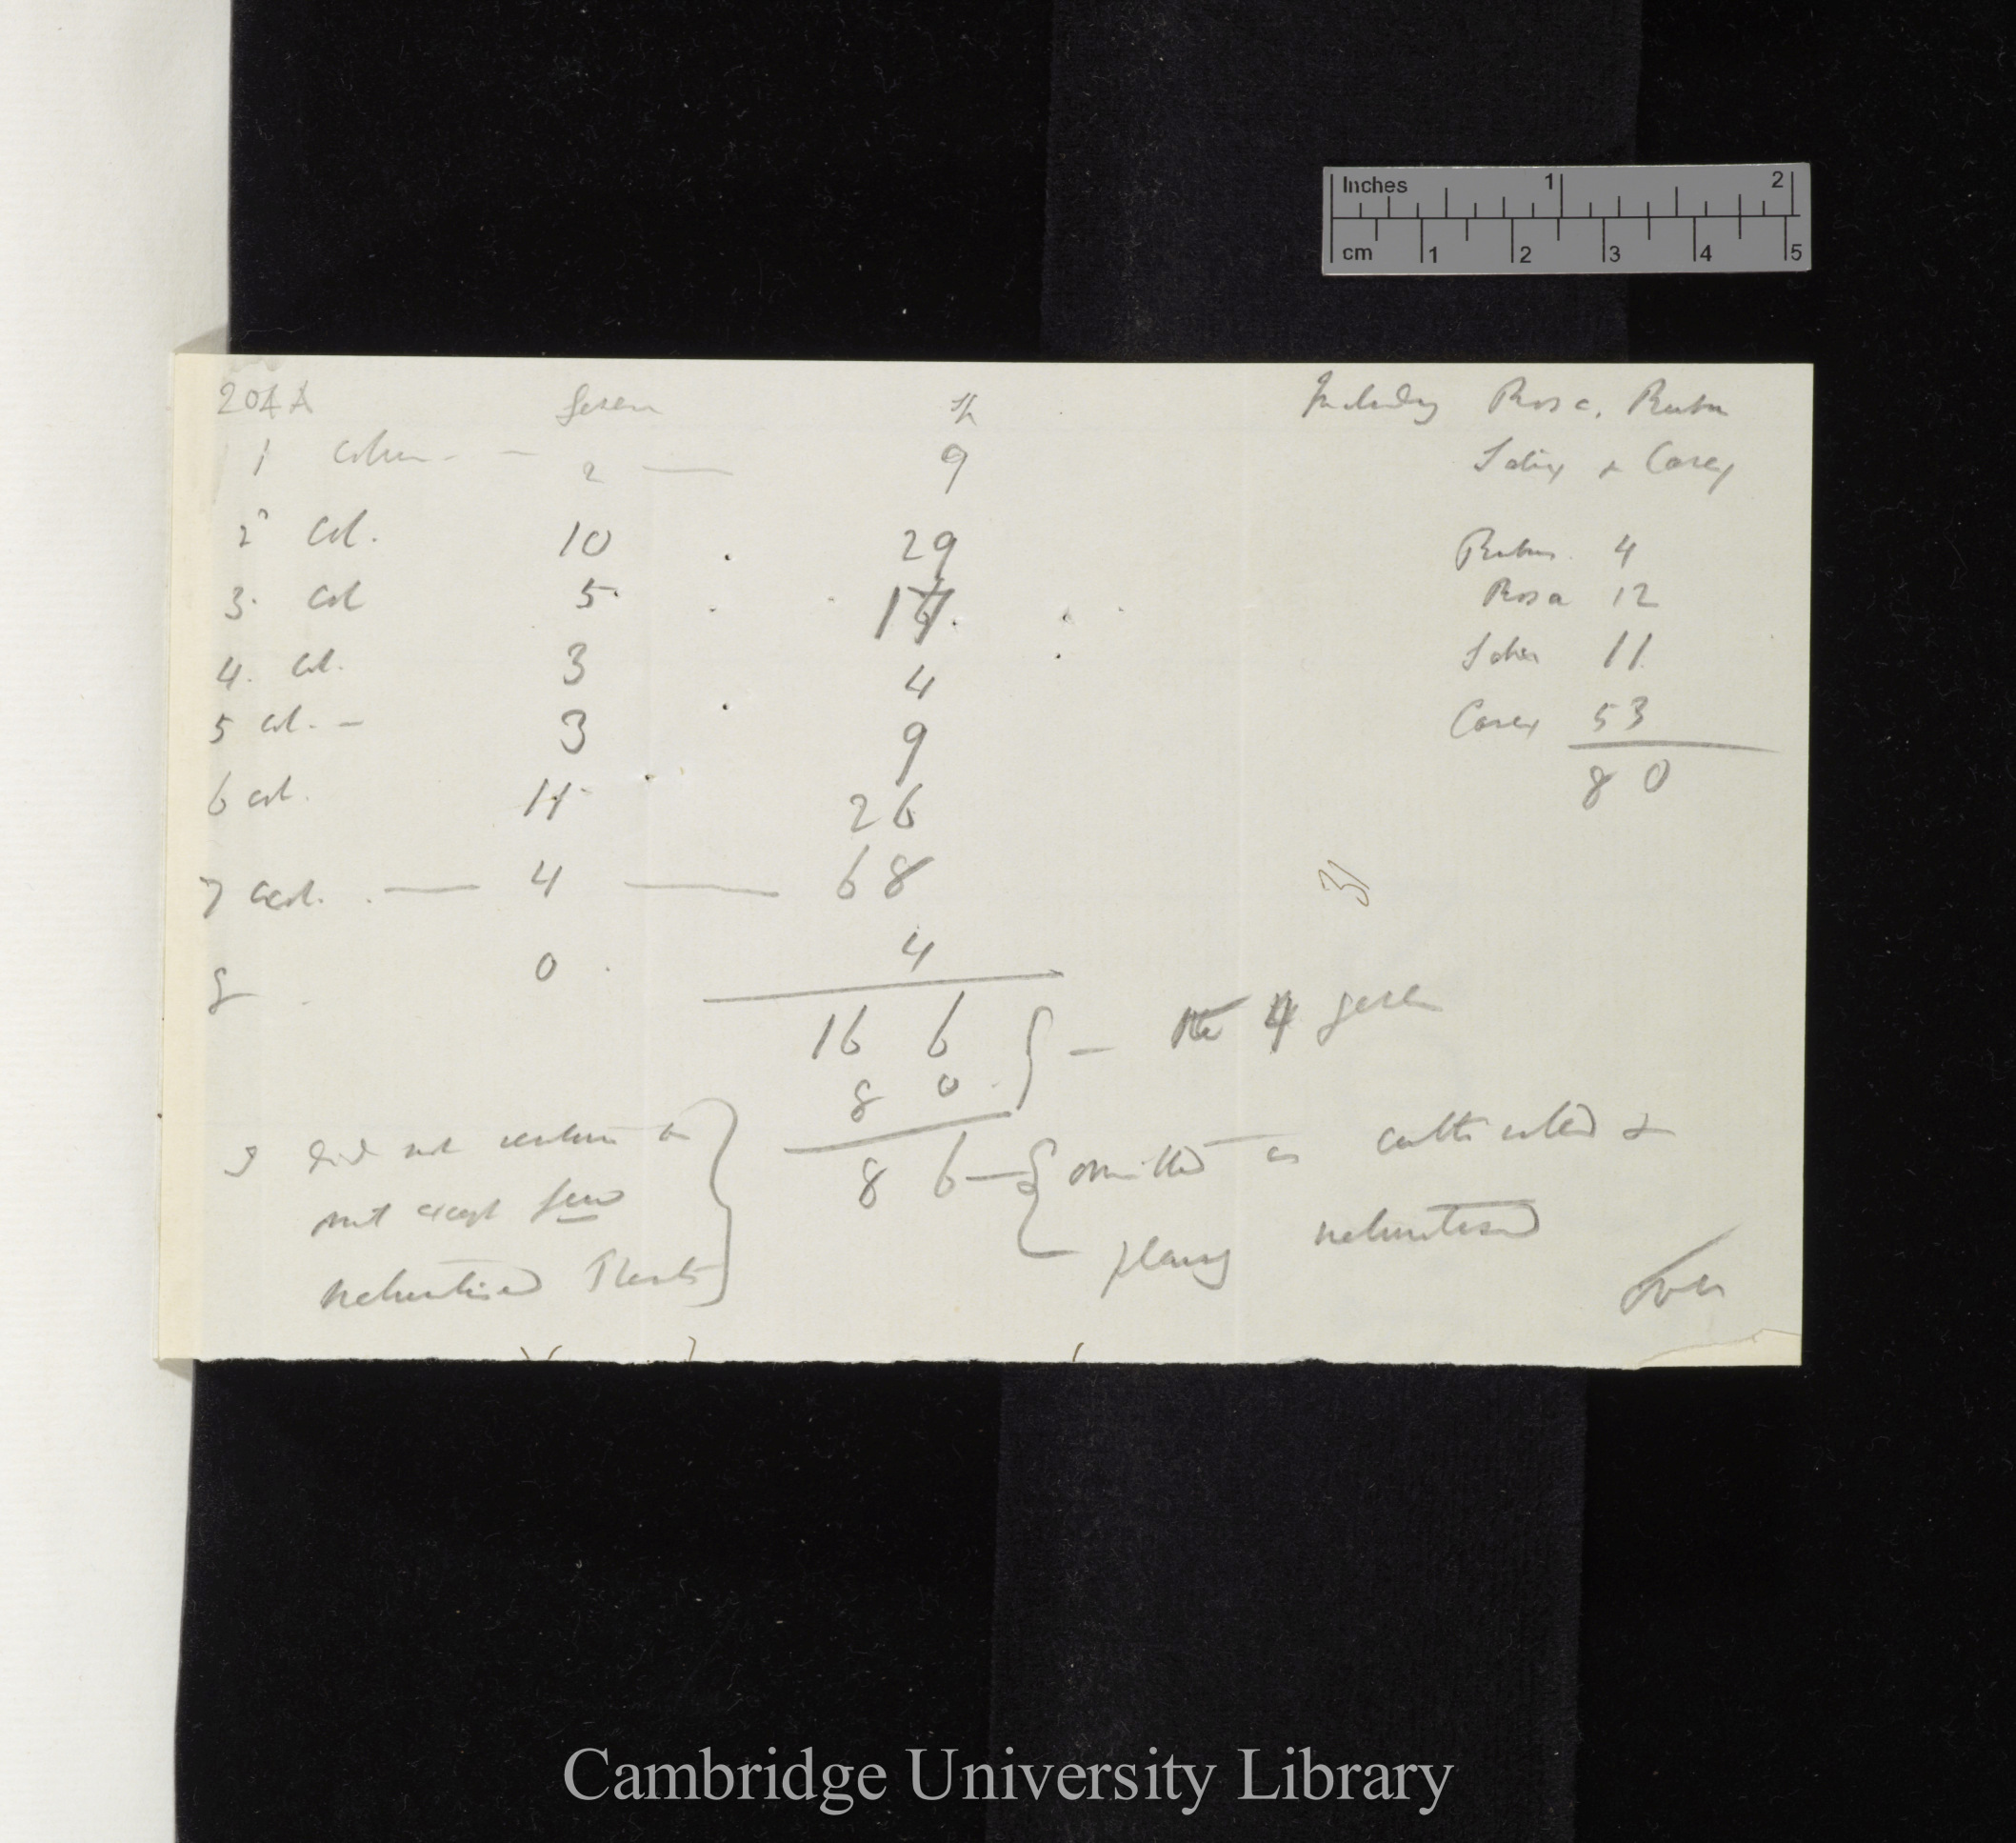 Inches 1 2
cm 1 2 3 4 5
204 A genera sp
Including Rosa, Rubus
1 colum - - 2 — 9
Salix & Carex
2 Col. 10 29
Rubus 4
3. Col 5 17.
Rosa 12
4. col. 3 4
Salix 11
5 col. - 3 9
Carex 53
80
6 col. 11 26
7 col. — 4 — 68
31
8 0 4
166 } — the 4 genera
80
I did not reckon in
86 — { omitted as cultivated &
not except few
plainly naturalised
naturalised Plants }
over
Cambridge University Library